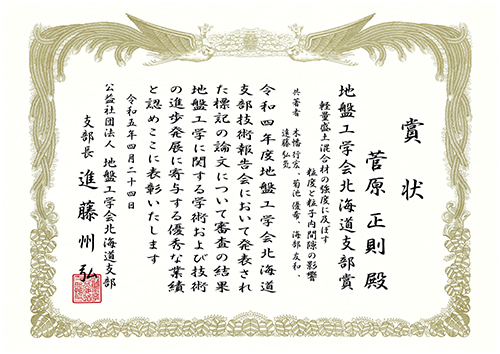 賞状
菅原 正則 殿
地盤工学会北海道支部賞
軽量盛土混合材の強度に及ぼす
粒度と粒子内間隙の影響
共著者 木幡行宏、菊池優希、海部友和、
遠藤弘気
令和四年度地盤工学会北海道
支部技術報告会において発表され
た標記の論文について審査の結果
地盤工学に関する学術および技術
の進歩発展に寄与する優秀な業績
と認めここに表彰いたします
令和五年四月二十四日
公益社団法人 地盤工学会北海道支部
支部長 進藤州弘